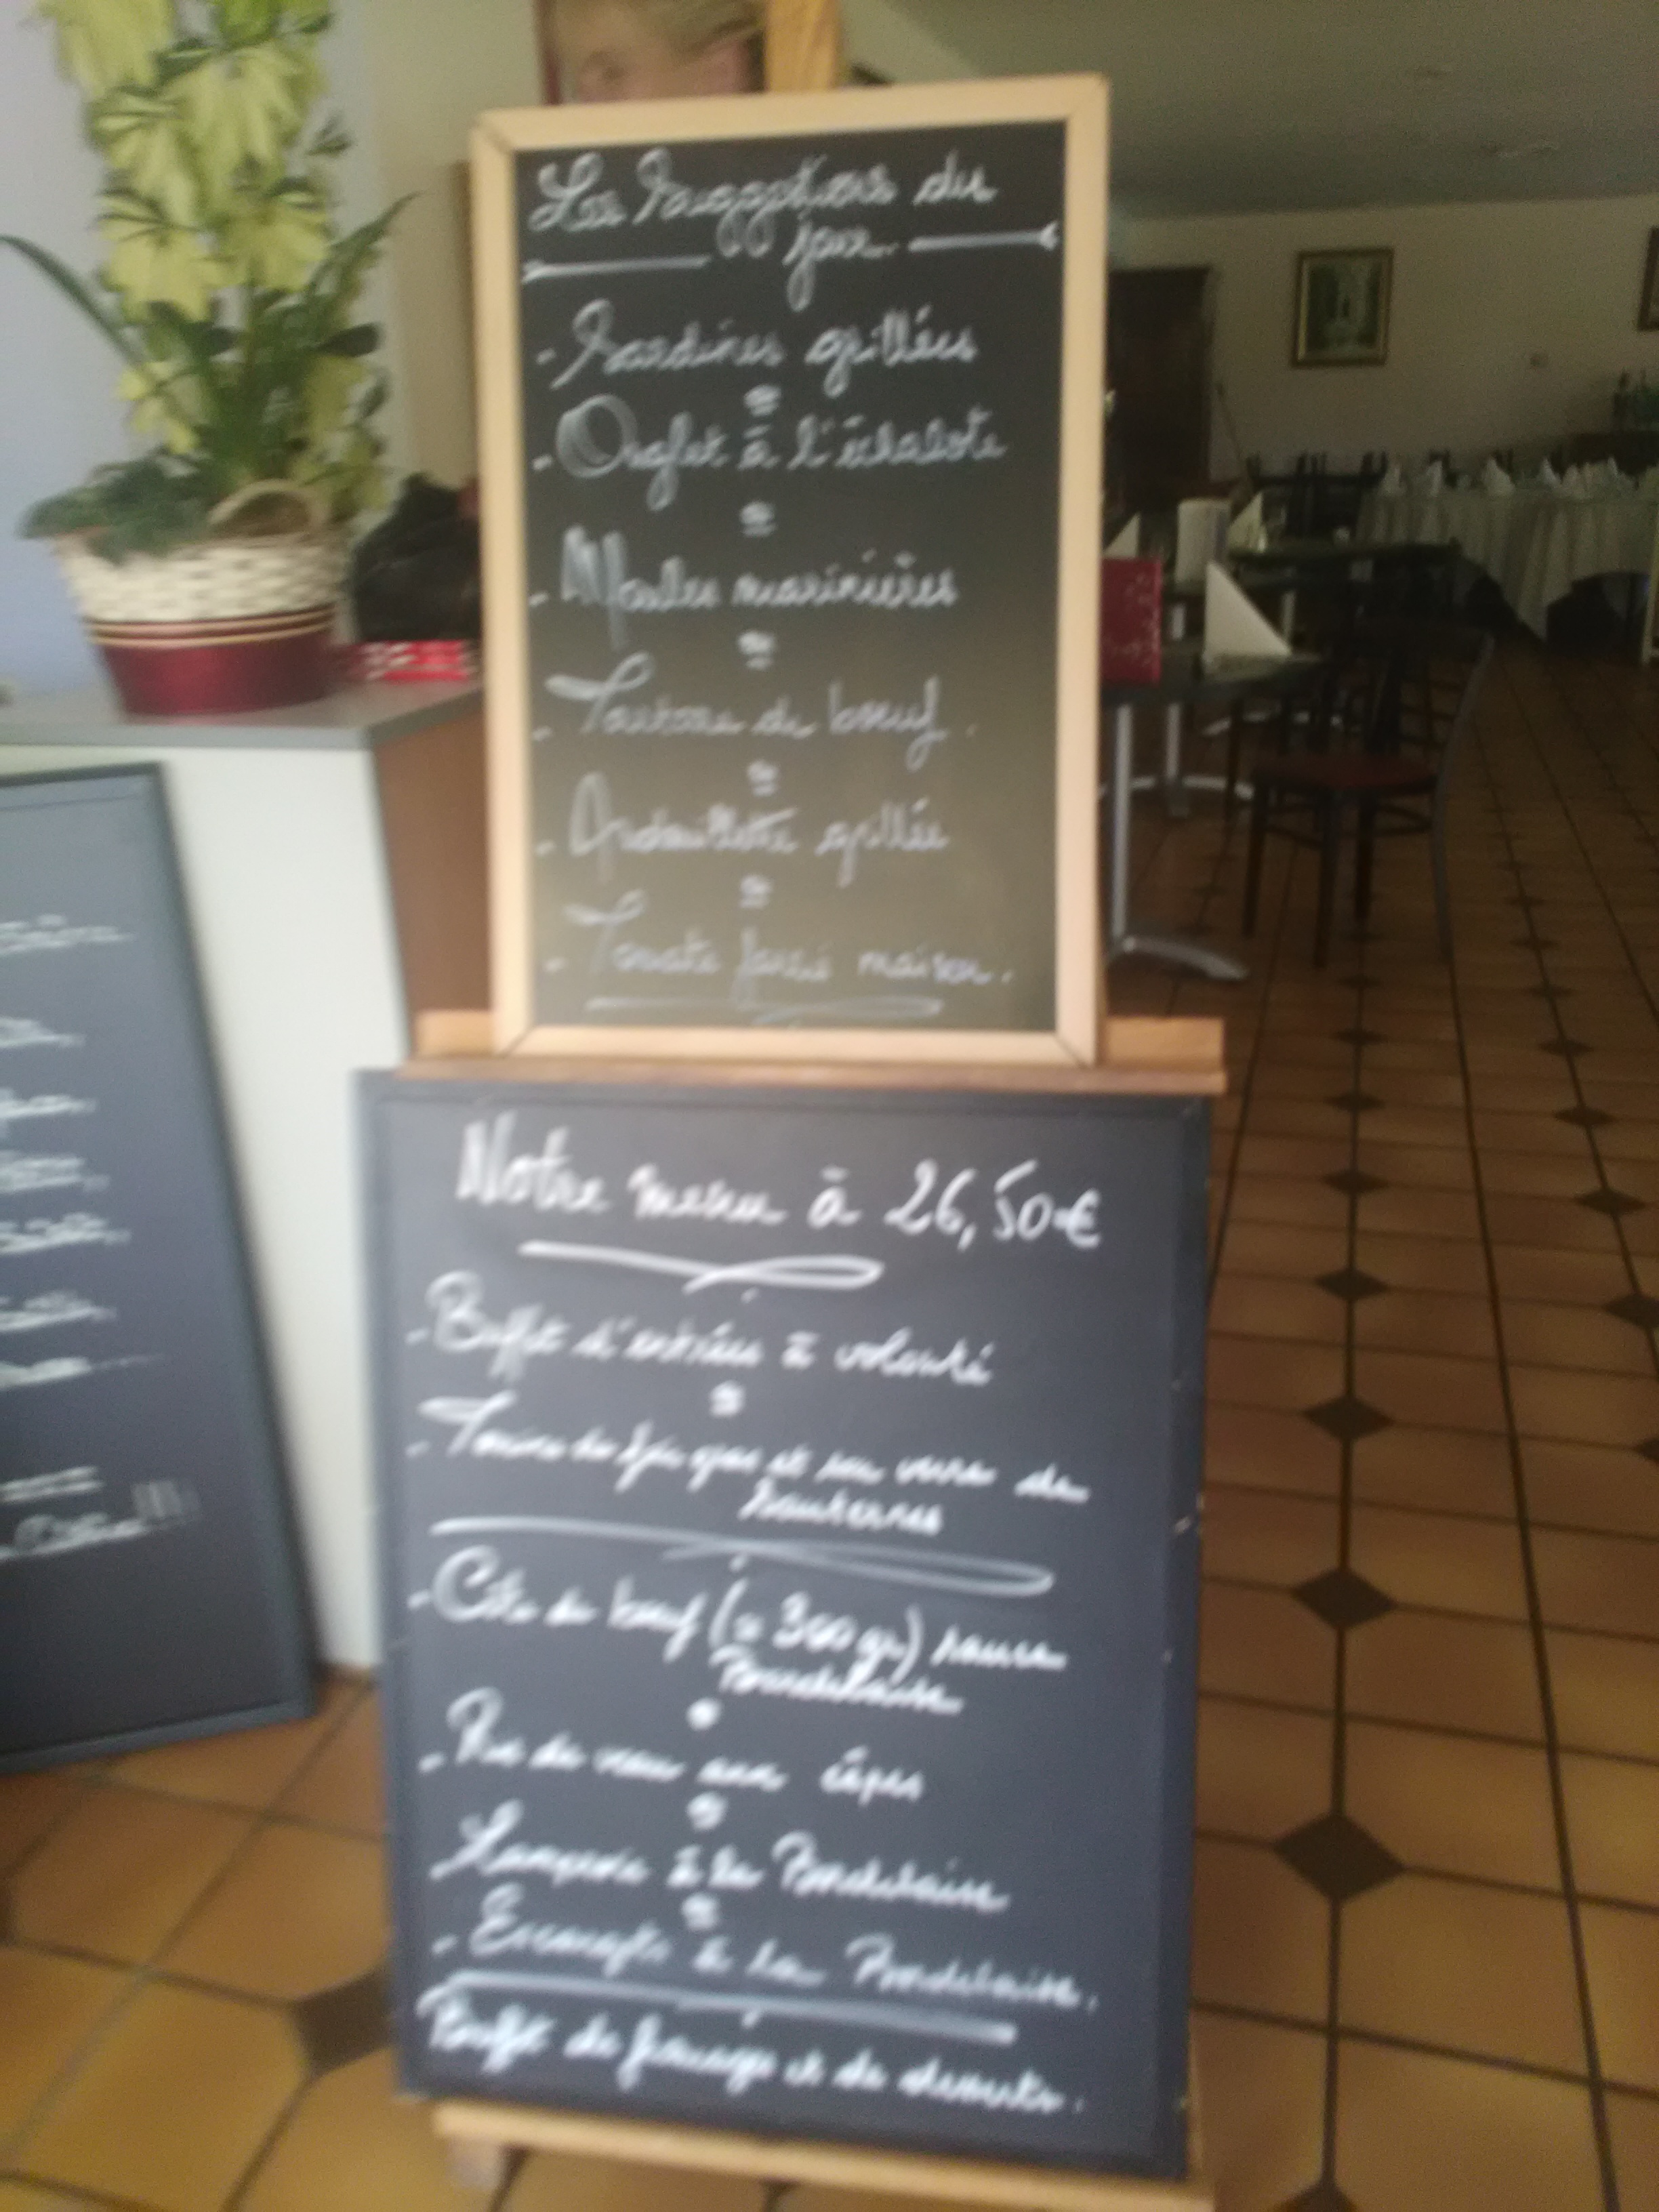 Les Suggestions du
jour.
- Sardines grillées
- Onglet à l'échalote
- Moules marinières
- Tartare de boeuf.
- Andouillette grillée
- Tomate farcie maison.
Notre menu à 26,50€
- Buffet d'entrées à volonté
- Terrine de foie gras et son verre de
Sauternes
- Côte de boeuf (= 300 gr) sauce
Bordelaise
- Ris de veau aux cèpes
Lamproie à la Bordelaise
- Escargots à la Bordelaise.
Buffet de fromage et de desserts.